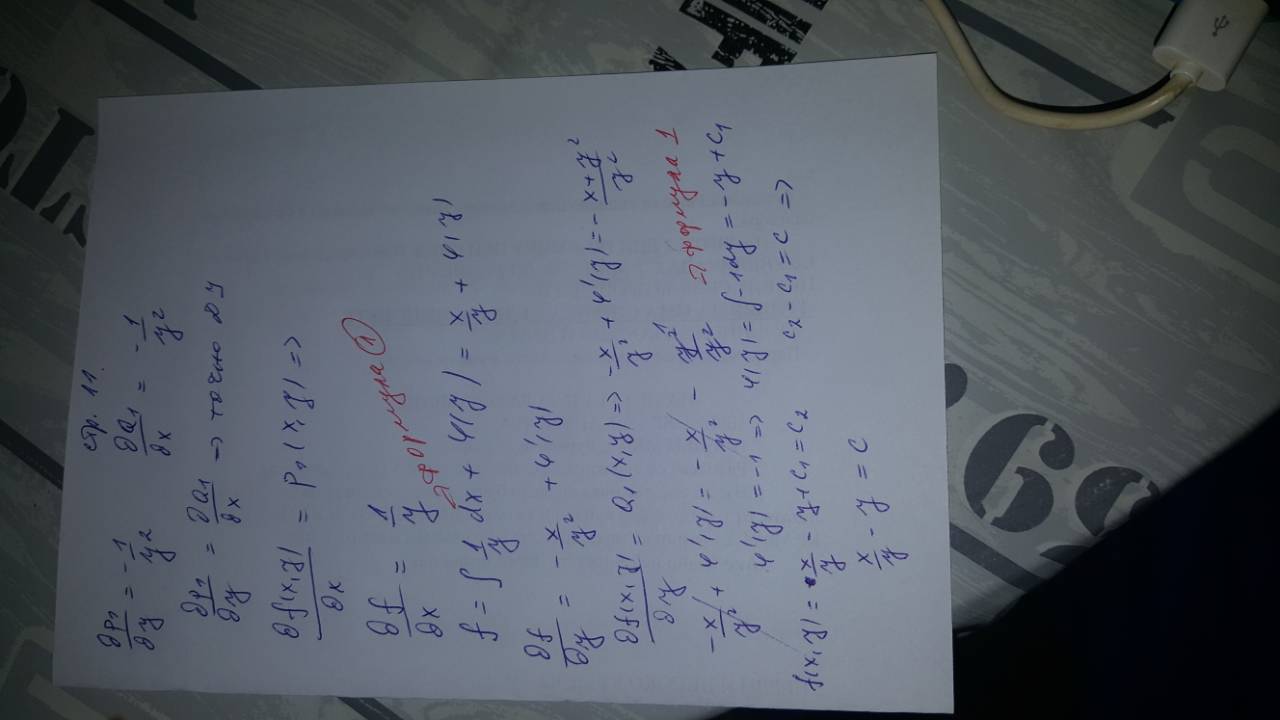 стр. 11.
∂P₁/∂y = -1/y² ∂Q₁/∂x = -1/y²
∂P₁/∂y = ∂Q₁/∂x → точно ДУ
∂f(x,y)/∂x = P₁(x,y) =>
∂f/∂x = 1/y
формула ①
f = ∫ 1/y dx + φ(y) = x/y + φ(y)
∂f/∂y = -x/y² + φ'(y)
∂f(x,y)/∂y = Q₁(x,y) => -x/y² + φ'(y) = -x+y²/y²
-x/y² + φ'(y) = -x/y² - y²/y² 1
=> формула 1
φ'(y) = -1 => φ(y) = ∫-1dy = -y + C₁
f(x,y) = x/y - y + C₁ = C₂ C₂ - C₁ = C =>
x/y - y = C
69